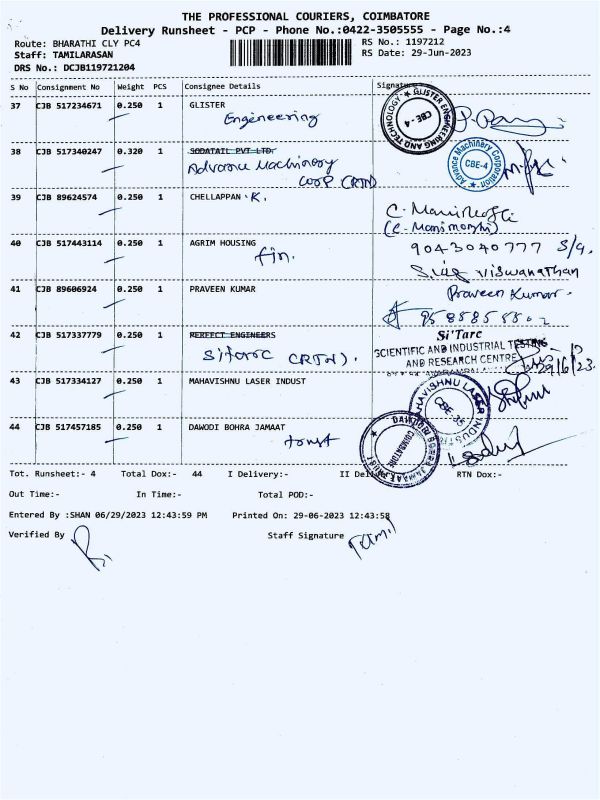 THE PROFESSIONAL COURIERS, COIMBATORE
Delivery Runsheet - PCP - Phone No.:0422-3505555 - Page No.:4
Route: BHARATHI CLY PC4 RS No.: 1197212
Staff: TAMILARASAN RS Date: 29-Jun-2023
DRS No.: DCJB119721204
S No Consignment No Weight PCS Consignee Details Signature
37 CJB 517234671 0.250 1 GLISTER
Engineering
GLISTER ENGINEERING AND TECHNOLOGY
CBE-4
38 CJB 517340247 0.320 1 SODATAIL PVT LTD.
Advance Machinery
Advance Machinery Corporation
CBE-4
39 CJB 89624574 0.250 1 CHELLAPPAN .K.
40 CJB 517443114 0.250 1 AGRIM HOUSING
fin.
9043040777 S/g.
Viswanathan
41 CJB 89606924 0.250 1 PRAVEEN KUMAR
Praveen Kumar.
42 CJB 517337779 0.250 1 PERFECT ENGINEERS
Sitarc (RTN).
Si'Tarc
SCIENTIFIC AND INDUSTRIAL TESTING
AND RESEARCH CENTRE
29/6/23.
43 CJB 517334127 0.250 1 MAHAVISHNU LASER INDUST
MAHAVISHNU LASER INDUST
CBE-35
44 CJB 517457185 0.250 1 DAWODI BOHRA JAMAAT
trust
DAWOODI BOHRA JAMAAT TRUST
COIMBATORE
Tot. Runsheet:- 4 Total Dox:- 44 I Delivery:- II Delivery:- RTN Dox:-
Out Time:- In Time:- Total POD:-
Entered By :SHAN 06/29/2023 12:43:59 PM Printed On: 29-06-2023 12:43:58
Verified By Staff Signature
Tamil